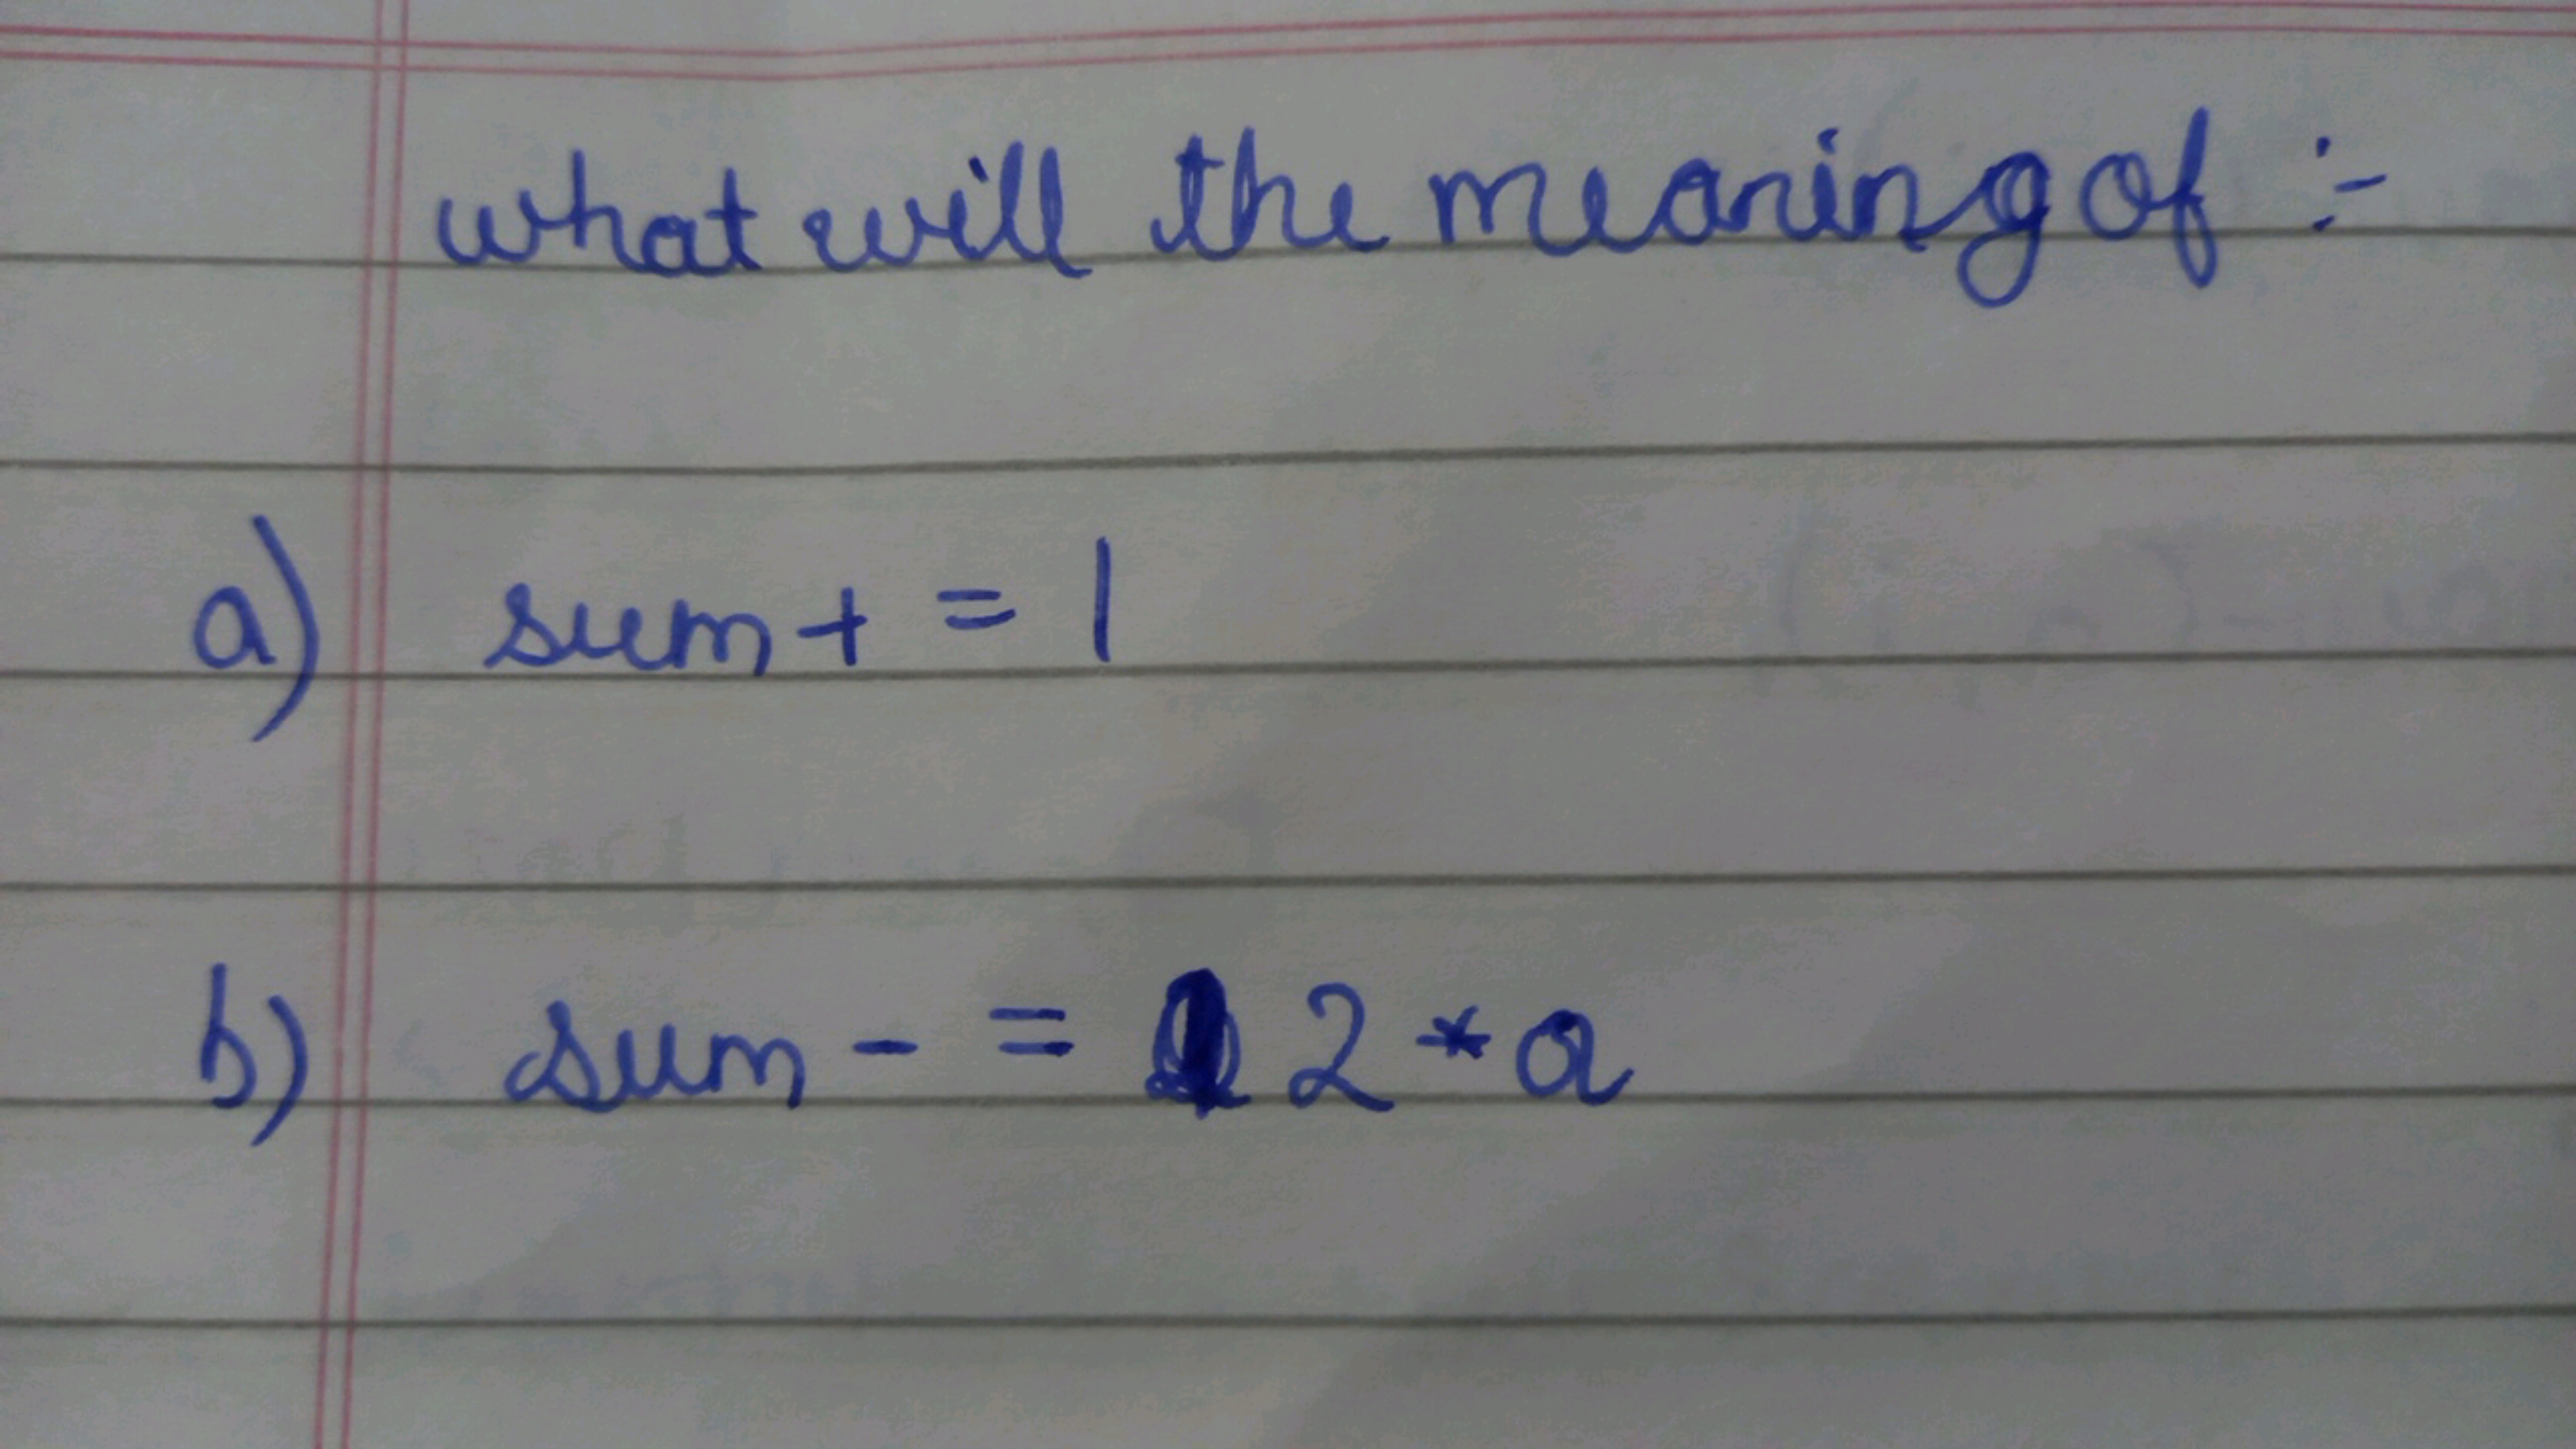 what will the meaning of :-
a) sum + = 1
b) sum - = 2 * a